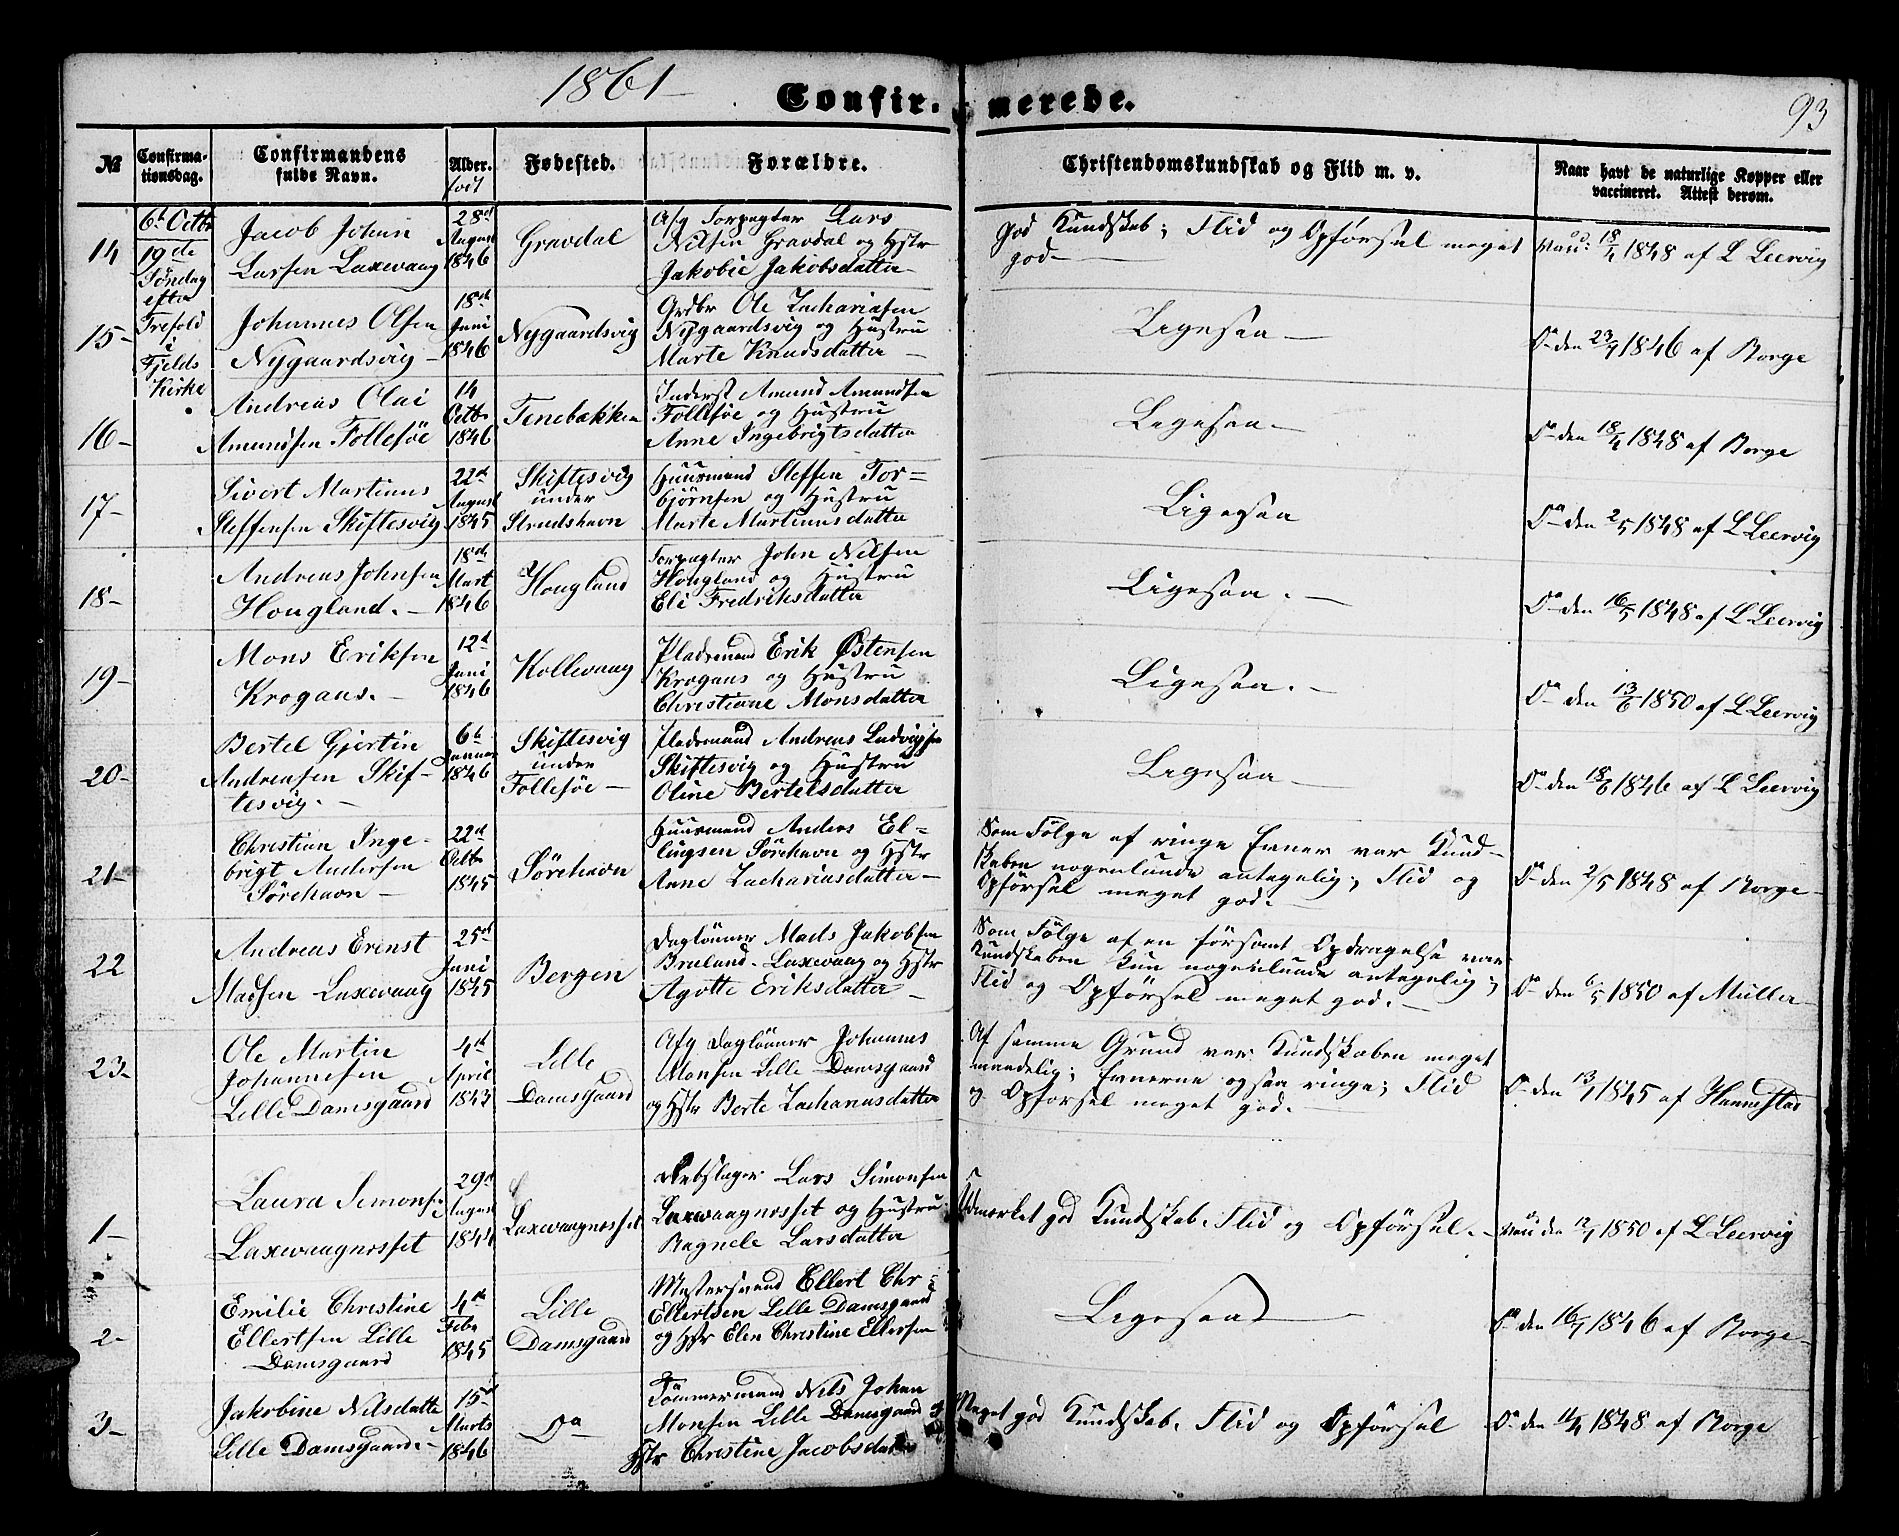 1861
Confirmerede.
93
№
Confirmationsdag.
Confirmandens fulde Navn.
Alder. født
Fødested.
Forældre.
Christendomskundskab og Flid m. v.
Naar havt de naturlige Kopper eller vaccineret. Attest derom.
6t Octbr
19de
Søndag
efter
Trefold
i
Fjelds
Kirke
14
Jacob Johan
Larsen Laxevaag
28d
August
1846
Gravdal
Afg Forpagter Lars
Nilsen Gravdal og Hstr
Jakobie Jakobsdatter
God Kundskab; Flid og Opførsel meget
god
Vacc: 18/4 1848 af L Leervig
15
Johannes Olsen
Nygaardsvig
18d
Juni
1846
Nygaardsvig
Grdbr Ole Zachariasen
Nygaardsvig og Hustru
Marte Knudsdatter
Ligesaa
Do den 23/7 1846 af Borge
16
Andreas Olai
Amundsen Follesøe
14
Octbr
1846
Tenebækken
Inderst Amund Amundsen
Follesøe og Hustru
Anne Ingebrigtsdatter
Ligesaa
Do den 18/4 1848 af Borge
17
Sivert Martinus
Steffensen Skiftesvig
22d
August
1845
Skiftesvig
under
Strudshavn
Huusmand Steffen Tor=
bjørnsen og Hustru
Marte Martinusdatter
Ligesaa
Do den 2/5 1848 af L Leervig
18
Andreas Johnsen
Hougland.
18de
Mart
1846
Hougland
Forpagter John Nilsen
Hougland og Hustru
Eli Fredriksdatter
Ligesaa.
Do den 16/5 1848 af L Leervig
19
Mons Eriksen
Krogaas.
12d
Juni
1846
Kollevaag
Pladsmand Erik Østensen
Krogaas og Hustru
Christiane Monsdatter
Ligesaa.
Do den 13/6 1850 af L Leervig
20
Bertel Gjertin
Andreasen Skif-
tesvig.
6t
Januar
1846
Skiftesvig
under
Follesøe
Pladsmand Andreas Ludvigsen
Skiftesvig og Hustru
Oline Bertelsdatter
Ligesaa
Do den 18/8 1846 af L Leervig
21
Christian Inge-
brigt Andersen
Sørehavn
22d
Octbr
1845
Sørehavn
Huusmand Anders El=
lingsen Sørehavn og Hstr
Anne Zachariasdatter
Som Følge af ringe Evner var Kund-
skaben nogenlunde antagelig; Flid og
Opførsel meget god.
Do den 2/5 1848 af Borge
22
Andreas Ernst
Madsen Laxevaag
25d
Juni
1845
Bergen
Daglønner Mads Jakobsen
Bruland. Laxevaag og Hstr
Agotte Eriksdatter
Som Følge af en forsømt Opdragelse var
Kundskaben kun nogenlunde antagelig;
Flid og Opførsel meget god.
Do den 6/5 1850 af Müller
23
Ole Martin
Johannesen
Lille Damsgaard
4d
April
1843
Lille
Damsgaard
Afg Daglønner Johannes
Monsen Lille Damsgaard
og Hstr Berte Zachariasdatter
Af samme Grund var Kundskaben meget
maadelig; Evnerne ogsaa ringe; Flid
og Opførsel meget god.
Do den 13/1 1845 af Hannestad
1
Laura Simonsen
Laxevaagnesset
29d
August
1844
Laxevaagnesset
Rebslager Lars Simonsen
Laxevaagnesset og Hustru
Ragnele Larsdatter
Udmærket god Kundskab. Flid og Opførsel.
Vacc den 12/1 1850 af L Leervig
2
Emilie Christine
Ellertsen Lille
Damsgaard
4d
Febr
1845
Lille
Damsgaard
Mestersvend Ellert Chr=
Ellertsen Lille Damsgaard
og Hstr Elen Christine Ellersen
Ligesaa
Do den 16/7 1846 af Borge
3
Jakobine Nilsdatter
Lille Damsgaard
15d
Marts
1846
Do
Tømmermand Nils Johan
Monsen Lille Damsgaard og
Hstr Christine Jacobsdatter
Meget god Kundskab. Flid og Opførsel
Do den 11/4 1848 af Borge